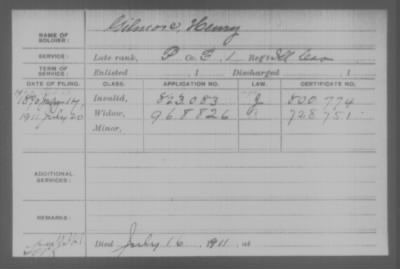 NAME OF SOLDIER: Gilmore, Henry
SERVICE: Late rank, P Co. F, 1 Reg't Ill Cav
TERM OF SERVICE: Enlisted , 1 Discharged , 1
DATE OF FILING. CLASS. APPLICATION NO. LAW. CERTIFICATE NO.
1890 July 14 Invalid, 823.083 J 820.774
1911 July 20 Widow, 968826 728751
Minor,
ADDITIONAL SERVICES:
REMARKS:
Died July 16 1911, at